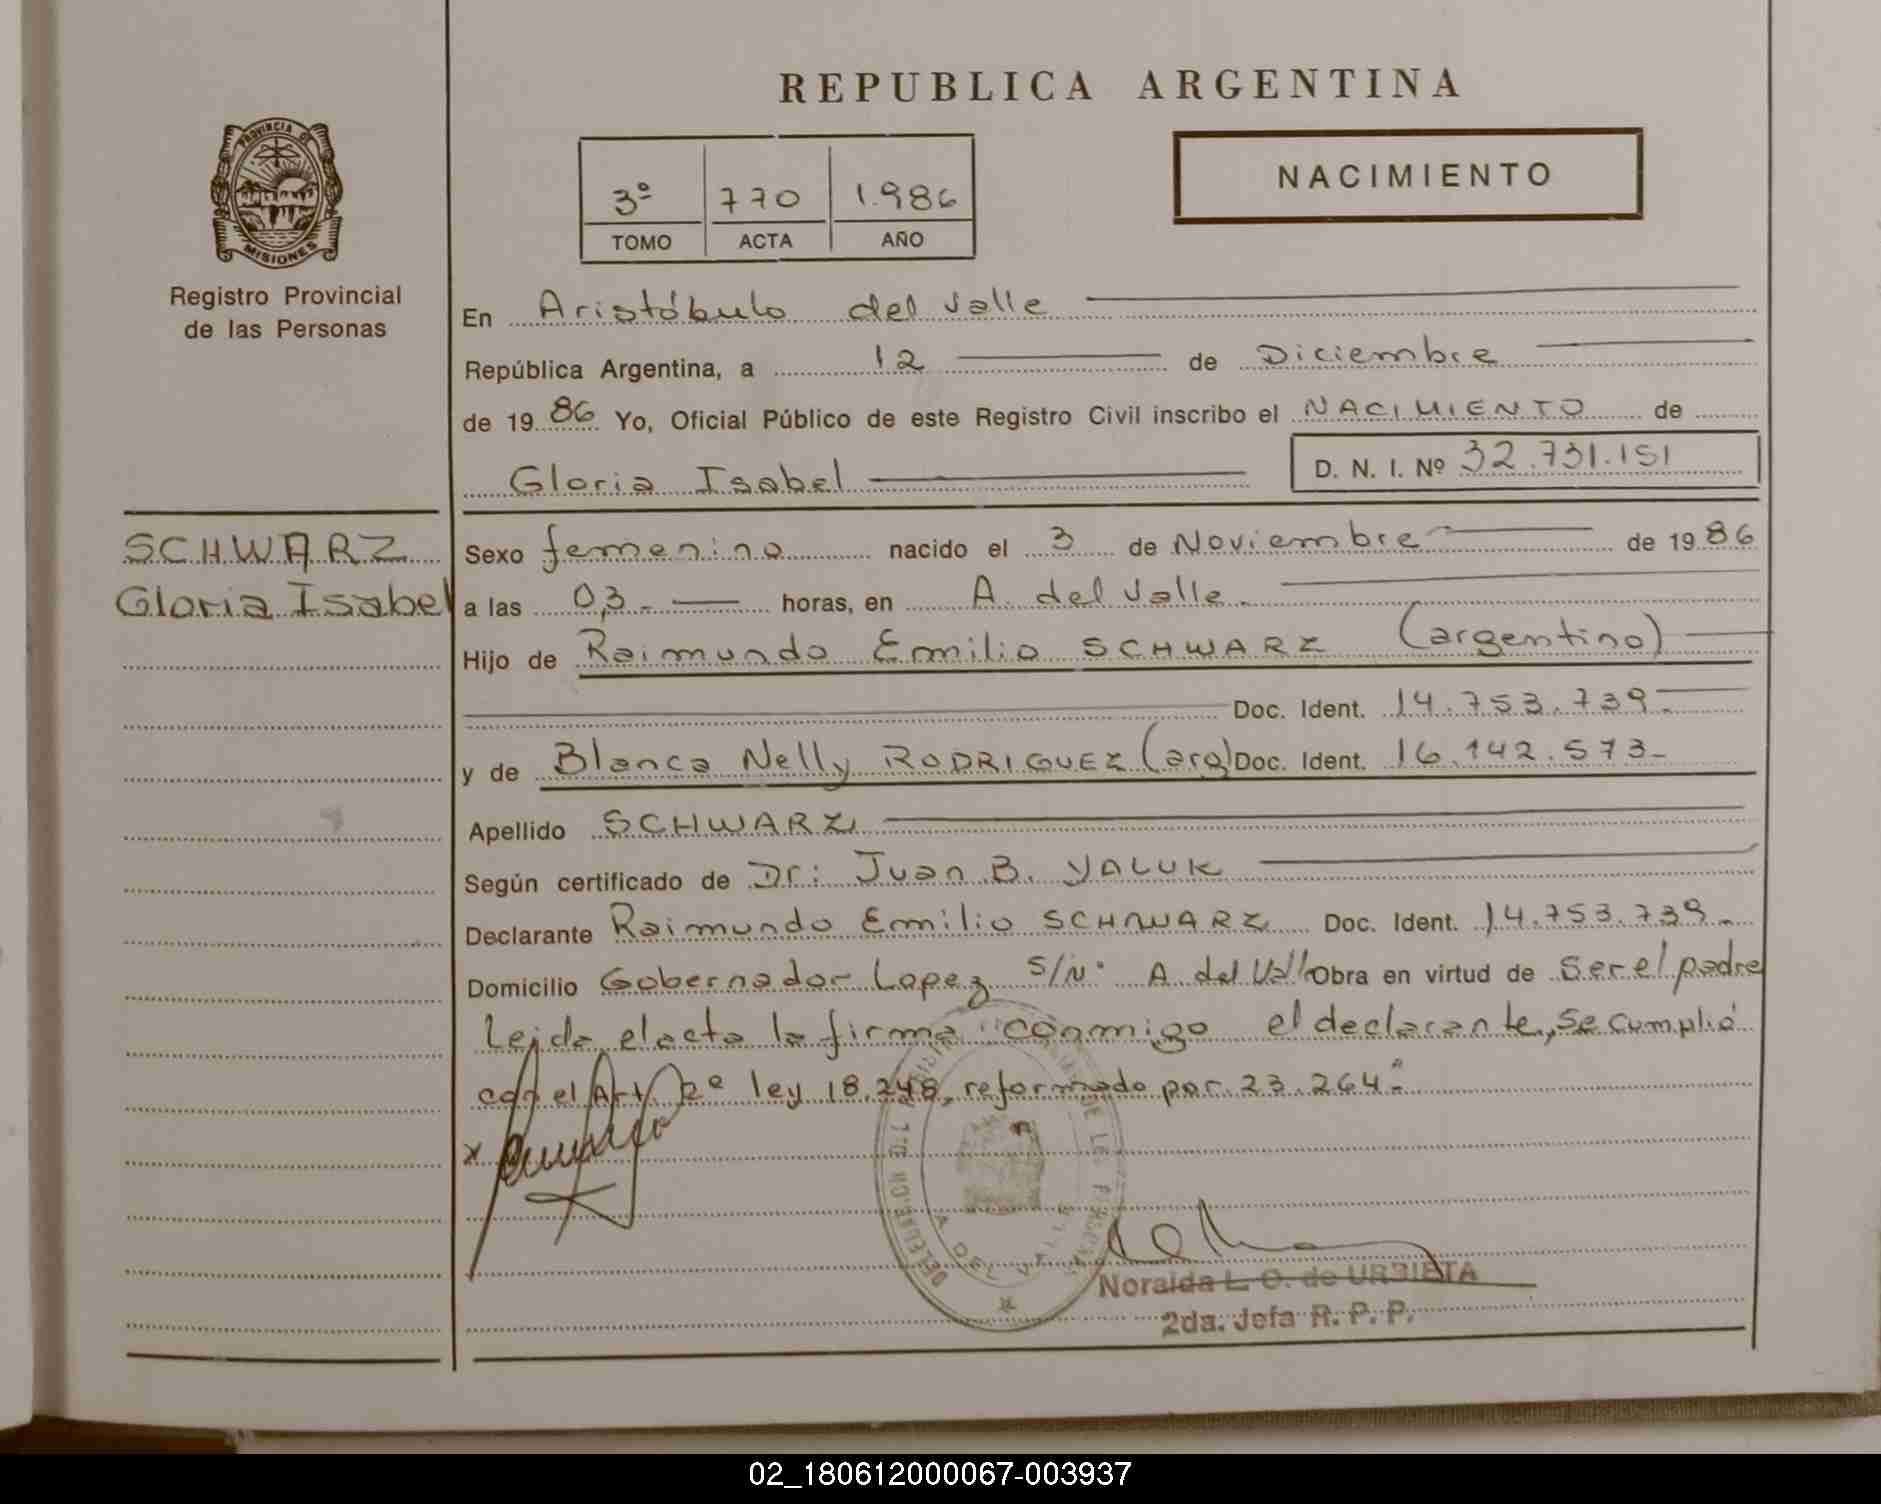 REPUBLICA ARGENTINA
PROVINCIA DE
MISIONES
Registro Provincial
de las Personas
3º 770 1.986
TOMO ACTA AÑO
NACIMIENTO
En Aristóbulo del Valle
República Argentina, a 12 de Diciembre
de 19 86 Yo, Oficial Público de este Registro Civil inscribo el NACIMIENTO de
Gloria Isabel D. N. I. Nº 32.731.151
SCHWARZ
Gloria Isabel
Sexo femenino nacido el 3 de Noviembre de 19 86
a las 03.- horas, en A. del Valle.
Hijo de Raimundo Emilio SCHWARZ (argentino)
Doc. Ident. 14.753.739.-
y de Blanca Nelly RODRIGUEZ (arg) Doc. Ident. 16.142.573-
Apellido SCHWARZ
Según certificado de Dr: Juan B. YALUK
Declarante Raimundo Emilio SCHWARZ Doc. Ident. 14.753.739.-
Domicilio Gobernador Lopez S/Nº A. del Valle Obra en virtud de ser el padre
Leida el acta la firma conmigo el declarante, se cumplió
con el Art. 2º ley 18.248, reformado por 23.264.-
x
A. DEL VALLE
Noraida L. O. de URBIETA
2da. Jefa R. P. P.
02_180612000067-003937